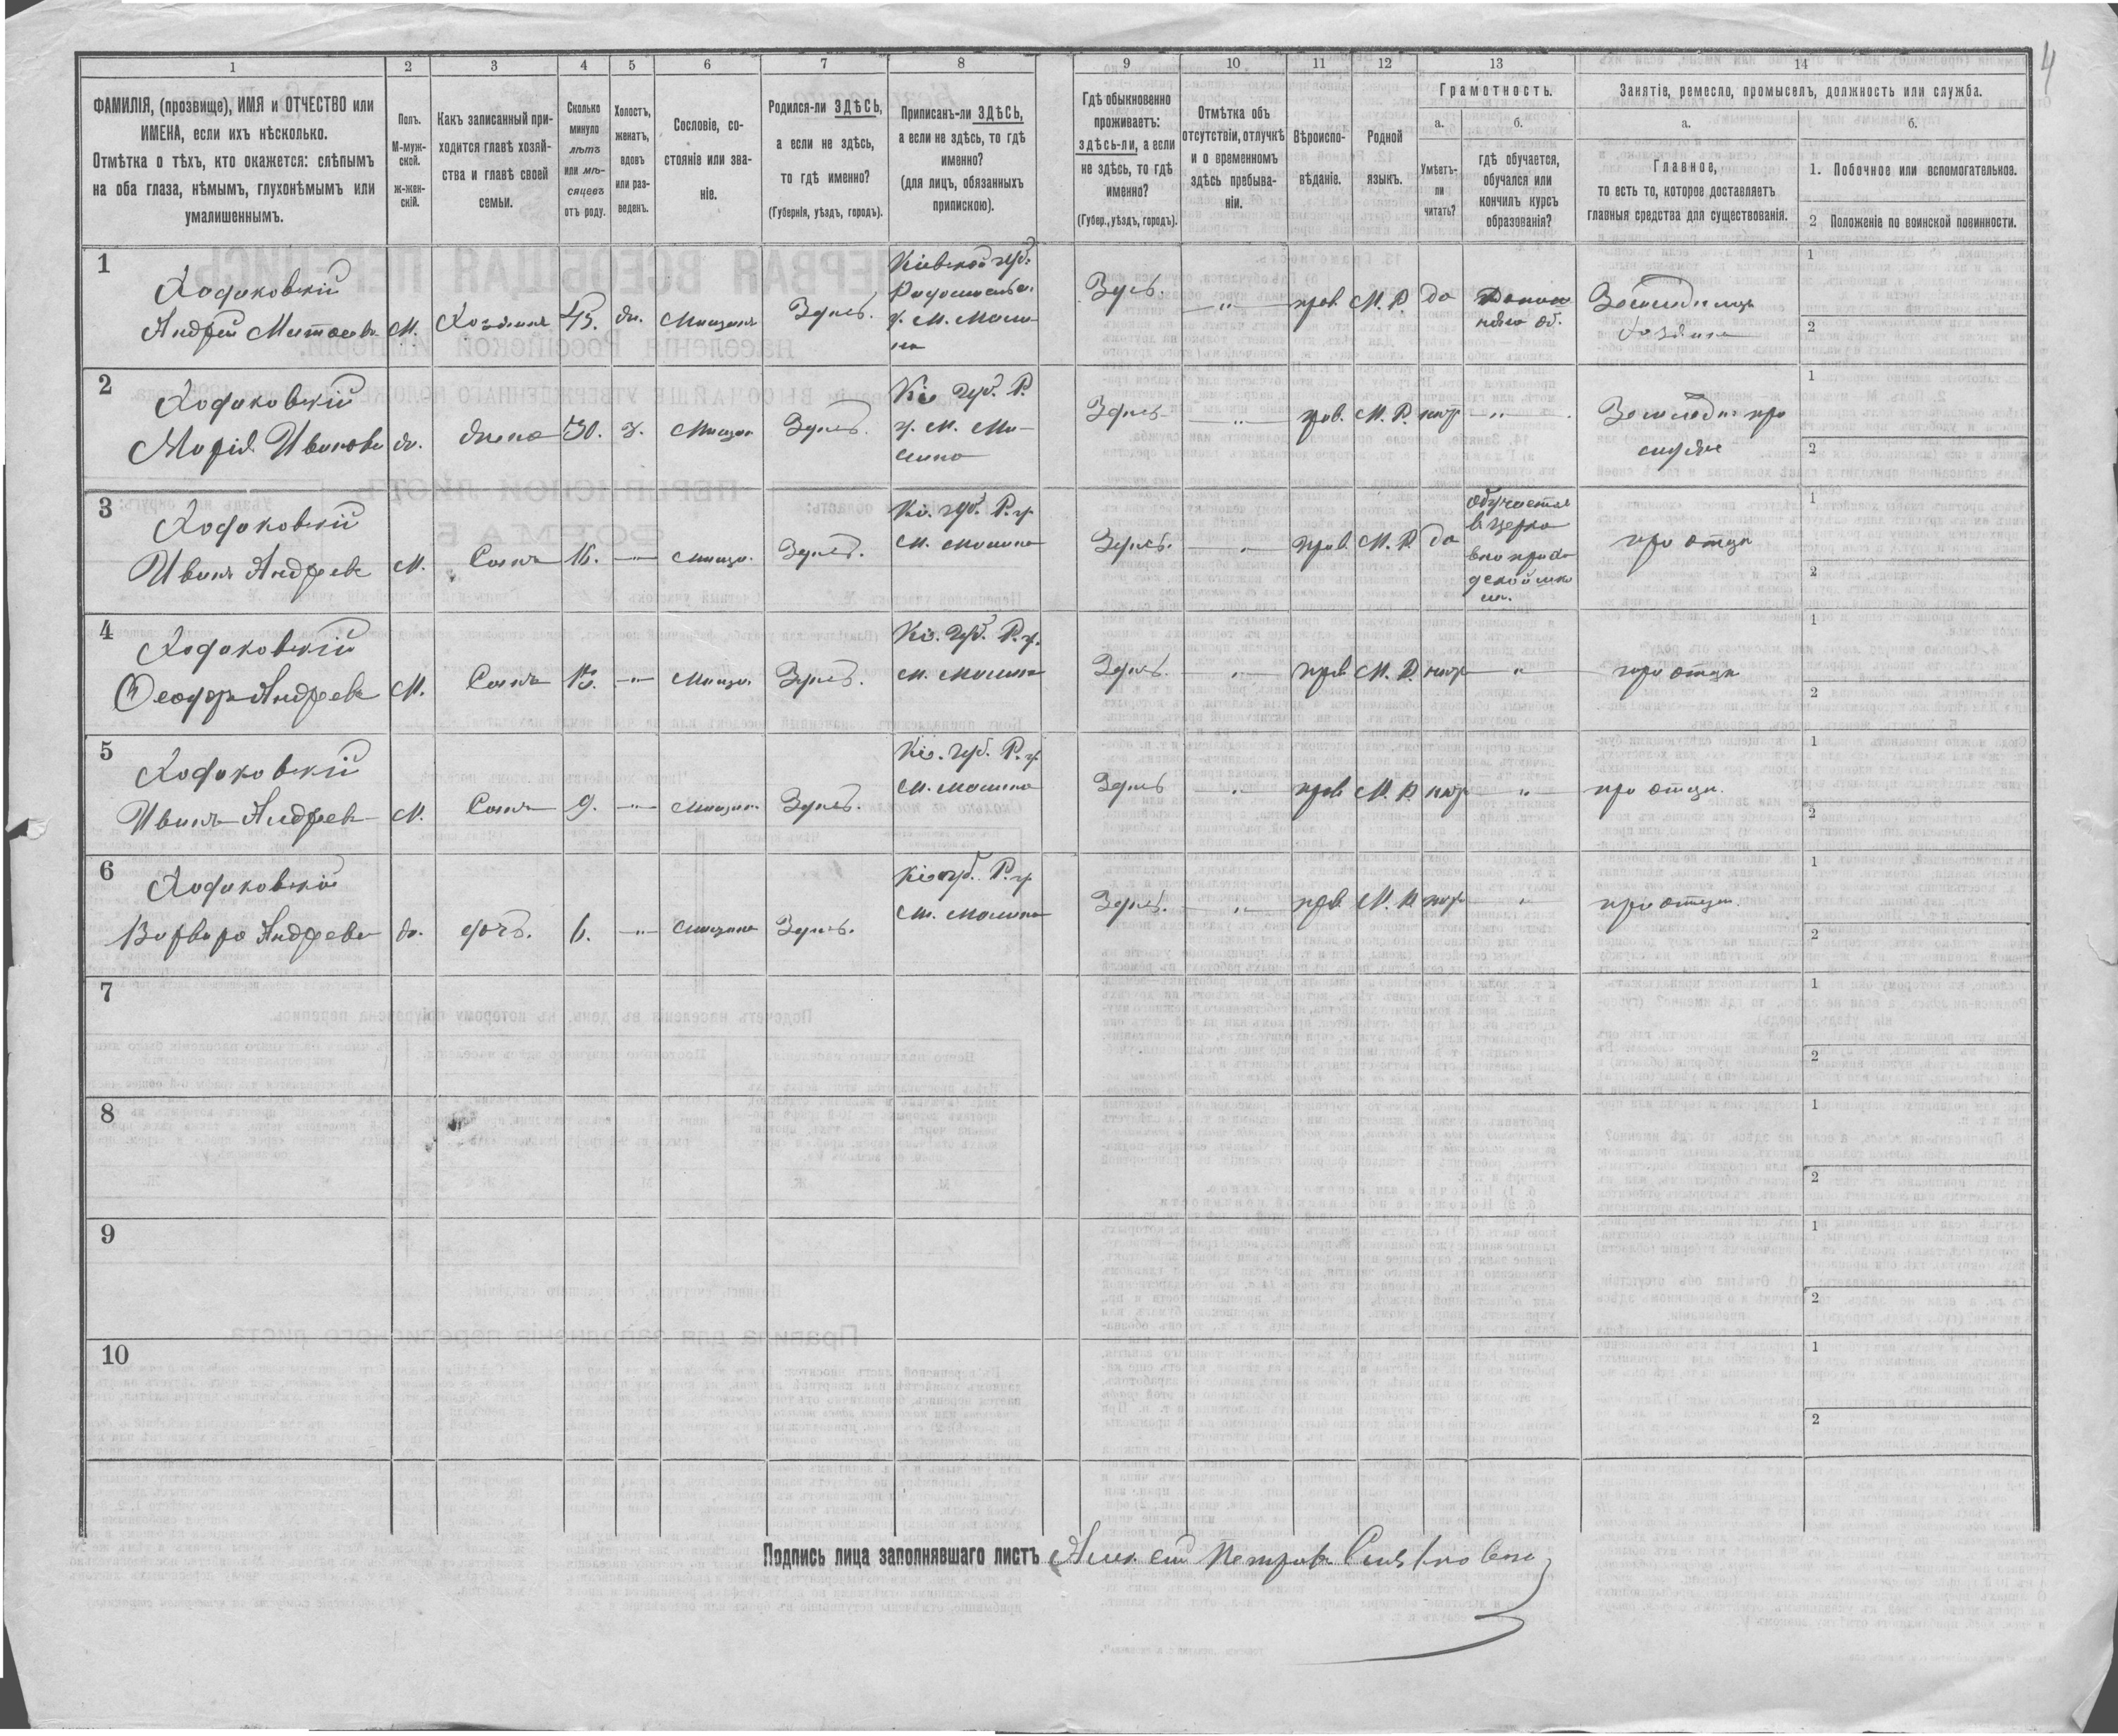 4
1
2
3
4
5
6
7
8
9
10
11
12
13
14
ФАМИЛІЯ, (прозвище), ИМЯ и ОТЧЕСТВО или
ИМЕНА, если ихъ нѣсколько.
Отмѣтка о тѣхъ, кто окажется: слѣпымъ
на оба глаза, нѣмымъ, глухонѣмымъ или
умалишеннымъ.
Полъ.
М-муж-
ской.
Ж-жен-
скій.
Какъ записанный при-
ходится главѣ хозяй-
ства и главѣ своей
семьи.
Сколько
минуло
лѣтъ
или мѣ-
сяцевъ
отъ роду.
Холостъ,
женатъ,
вдовъ
или раз-
веденъ.
Сословіе, со-
стояніе или зва-
ніе.
Родился-ли ЗДѢСЬ,
а если не здѣсь,
то гдѣ именно?
(Губернія, уѣздъ, городъ).
Приписанъ-ли ЗДѢСЬ,
а если не здѣсь, то гдѣ
именно?
(для лицъ, обязанныхъ
припискою).
Гдѣ обыкновенно
проживаетъ:
здѣсь-ли, а если
не здѣсь, то гдѣ
именно?
(Губер., уѣздъ, городъ).
Отмѣтка объ
отсутствіи, отлучкѣ
и о временномъ
здѣсь пребыва-
ніи.
Вѣроиспо-
вѣданіе.
Родной
языкъ.
Грамотность.
а.
Умѣетъ-
ли
читать?
б.
гдѣ обучается,
обучался или
кончилъ курсъ
образованія?
Занятіе, ремесло, промыселъ, должность или служба.
а.
Главное,
то есть то, которое доставляетъ
главныя средства для существованія.
б.
1. Побочное или вспомогательное.
2 Положеніе по воинской повинности.
1
Ходаковскій
Андрей
М.
Хозяинъ
45.
жн.
Мѣщанинъ
Здѣсь.
Кіевской губ.
у. М. Мали-
на
Здѣсь.
"
прав
М. Р.
да
Домаш
няго об.
Земледѣлецъ
хозяинъ
1
2
2
Ходаковскій
Марія Иванова
ж.
жена
30.
з.
Мѣщан
Здѣсь.
Кіе губ. Р.
у. М. Ма-
лина
Здѣсь
"
прав.
М. Р.
нѣт
"
Земледѣл при
мужѣ
1
2
3
Ходаковскій
Иванъ Андреев
М.
Сынъ
16.
"
мѣщан.
Здѣсь.
Кі. губ. Р. у
м. Малина
Здѣсь.
"
прав
М. Р.
да
обучается
в церко
вно прихо
дской шко
лѣ.
при отцѣ
1
2
4
Ходаковскій
Ѳеодоръ Андреев
М.
Сынъ
"
Мѣщан.
Здѣсь.
Кіе. губ. Р. у.
м. Малина
Здѣсь.
"
прав
М. Р.
нѣт
"
при отцѣ
1
2
5
Ходаковскій
Иванъ Андреев
М.
Сынъ
9.
"
мѣщан
Здѣсь.
Кіе. губ. Р. у
м. Малина
Здѣсь
"
прав
М. Р.
нѣт
"
при отцѣ.
1
2
6
Ходаковска
Варвара Андреева
ж.
дочь.
6.
"
мѣщанка
Здѣсь.
Кіе губ. Р. у
м. Малина
Здѣсь.
"
прав.
М. Р.
нѣт
"
при отцѣ.
1
2
7
1
2
8
1
2
9
1
2
10
1
2
Подпись лица заполнявшаго листъ Алексѣй Петровъ